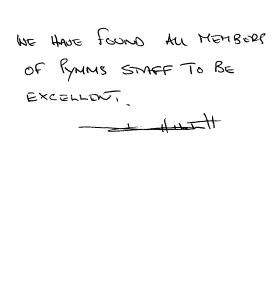 WE HAVE FOUND ALL MEMBERS
OF PYMMS STAFF TO BE
EXCELLENT.